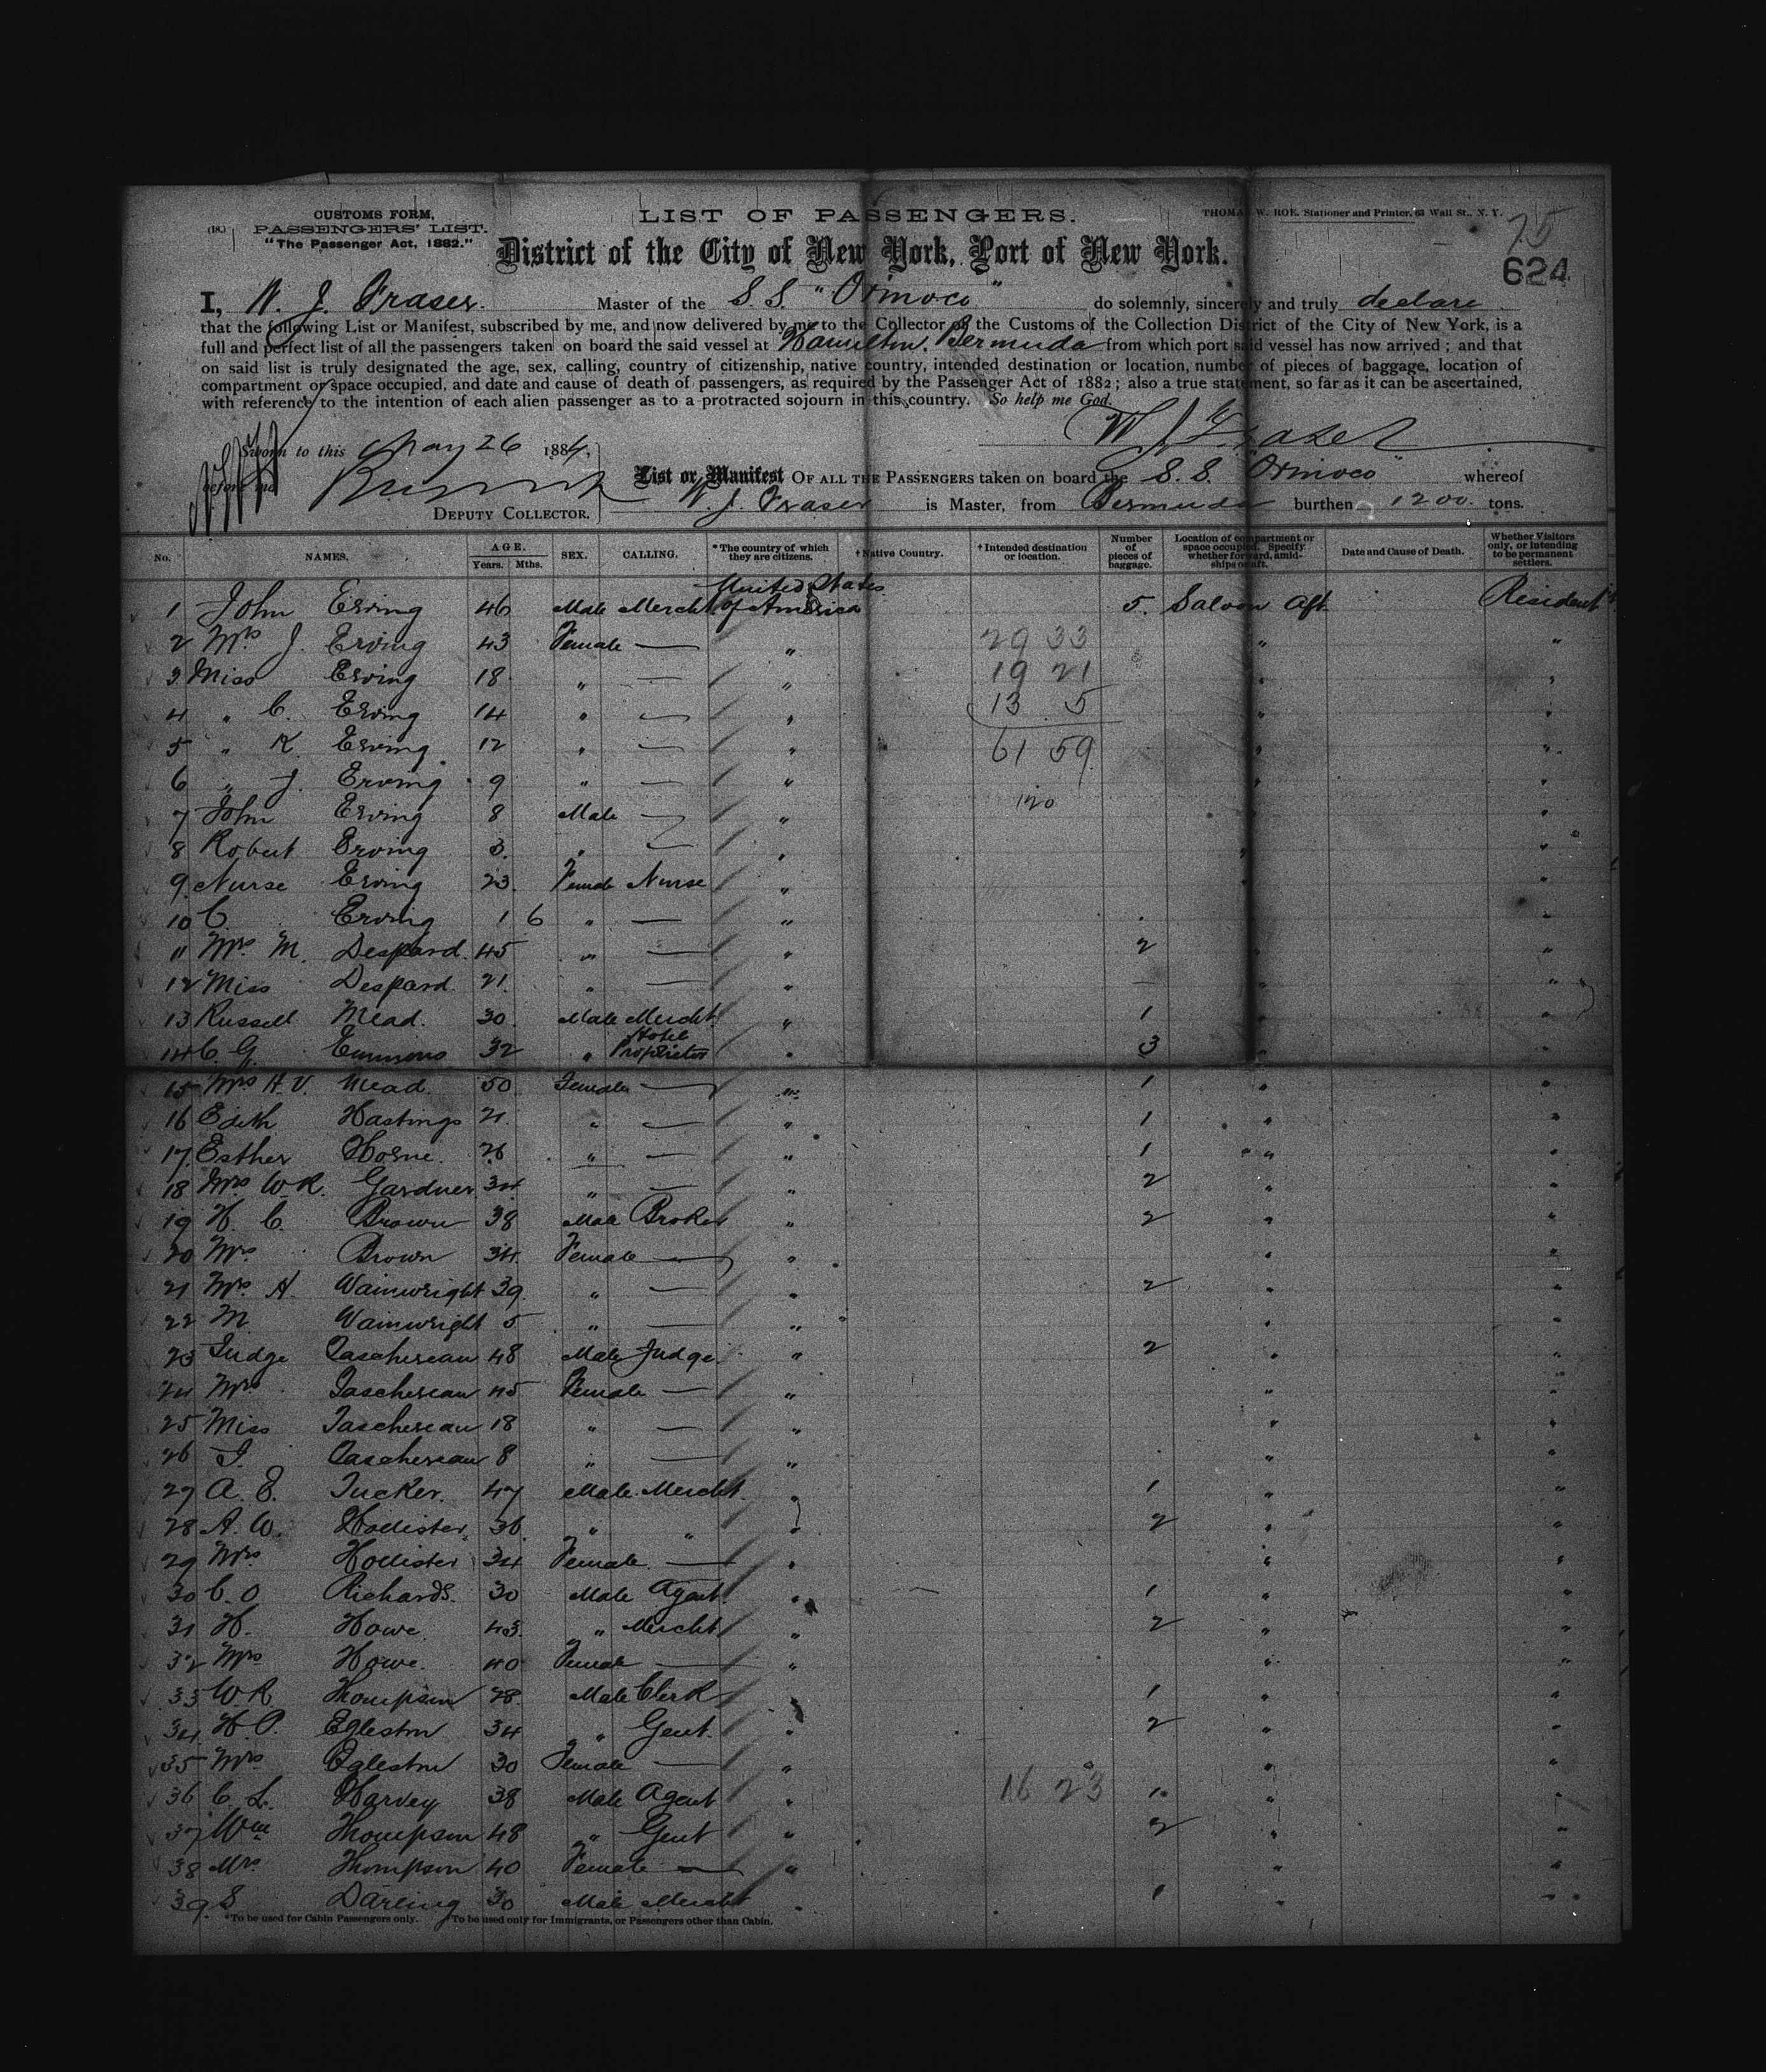 CUSTOMS FORM,
(18.) PASSENGERS' LIST.
"The Passenger Act, 1882."
LIST OF PASSENGERS.
THOMAS W. ROE, Stationer and Printer, 63 Wall St., N. Y.
75
624
District of the City of New York, Port of New York.
I, W. J. Fraser. Master of the S. S. "Orinoco" do solemnly, sincerely and truly declare
that the following List or Manifest, subscribed by me, and now delivered by me to the Collector of the Customs of the Collection District of the City of New York, is a
full and perfect list of all the passengers taken on board the said vessel at Hamilton, Bermuda from which port said vessel has now arrived; and that
on said list is truly designated the age, sex, calling, country of citizenship, native country, intended destination or location, number of pieces of baggage, location of
compartment or space occupied, and date and cause of death of passengers, as required by the Passenger Act of 1882; also a true statement, so far as it can be ascertained,
with reference to the intention of each alien passenger as to a protracted sojourn in this country. So help me God.
W J Fraser
Sworn to this May 26 1884,
before me
DEPUTY COLLECTOR.
List or Manifest OF ALL THE PASSENGERS taken on board the S. S. "Orinoco" whereof
W. J. Fraser is Master, from Bermuda burthen 1200 tons.
No. NAMES. AGE. Years. Mths. SEX. CALLING. *The country of which they are citizens. †Native Country. †Intended destination or location. Number of pieces of baggage. Location of compartment or space occupied. Specify whether forward, amidships or aft. Date and Cause of Death. Whether Visitors only, or intending to be permanent settlers.
1 John Erving 46 Male Mercht United States of America 5. Saloon Aft Resident
2 Mrs J. Erving 43 Female — " 29 33 " "
3 Miss Erving 18 " — " 19 21 " "
4 " C. Erving 14 " — " 13 5 " "
5 " K. Erving 12 " — " 61 59 " "
6 " J. Erving 9 " — " " "
7 John Erving 8 Male — " 120 " "
8 Robert Erving 3 " — " " "
9 Nurse Erving 23. Female Nurse " " "
10 C. Erving 1 6 " — " " "
11 Mrs M. Despard. 45 " — " 2 " "
12 Miss Despard. 21. " — " " "
13 Russell Mead. 30. Male Mercht " 1 " "
14 C. G. Emmons 32 " Hotel Proprietor " 3 " "
15 Mrs H. V. Mead. 50 Female — " 1 " "
16 Edith Hastings 21. " — " 1 " "
17. Esther Horne. 26 " — " 1 " "
18 Mrs W. R. Gardner 34 " — " 2 " "
19 H. C. Brown 38 Male Broker " 2 " "
20 Mrs Brown 34. Female — " " "
21 Mrs H. Wainwright 39. " — " 2 " "
22 M Wainwright 5 " — " " "
23 Judge Taschereau 48 Male Judge. " 2 " "
24 Mrs Taschereau 45 Female — " " "
25 Miss Taschereau 18 " — " " "
26 J. Taschereau 8 " — " " "
27 A. E. Tucker. 47 Male Mercht. " 1 " "
28 A. W. Hollister. 36 " " " 2 " "
29 Mrs Hollister 34 Female — " " "
30 C. O Richards. 30 Male Agent. " 1 " "
31 H. Howe 43. " Mercht " 2 " "
32 Mrs Howe. 40 Female — " " "
33 W. R. Thompson 28. Male Clerk " 1 " "
34. H. P. Egleston 34 " Gent. " 2 " "
35 Mrs Egleston 30 Female — " " "
36 C. L. Harvey 38 Male Agent " 16 23 1. " "
37 Wm Thompson 48 " Gent " 2 " "
38 Mrs Thompson 40 Female — " " "
39. S Darling 30 Male Mercht " 1 " "
*To be used for Cabin Passengers only. †To be used only for Immigrants, or Passengers other than Cabin.